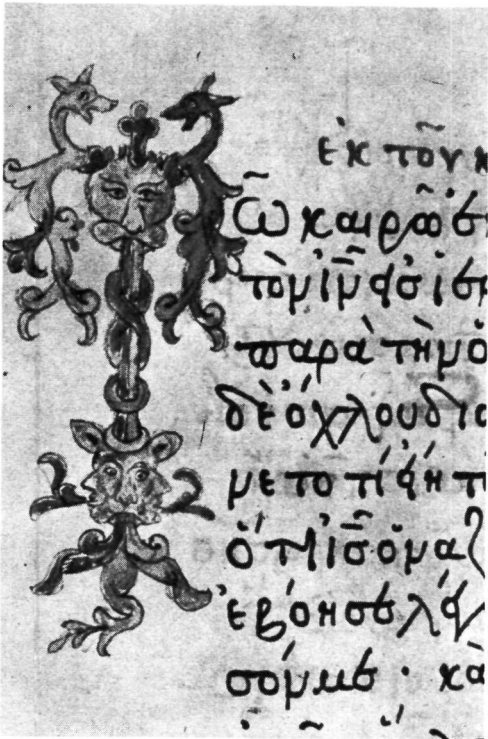 ἐκ τοῦ κ
Τῶ καιρῶ ἐκ
τὸν ἰ̅ν̅ εἰς ἰε
παρὰ τὴν ὁ
δὲ ὄχλου δια
νετο τί εἴη τ
ὅτι ἰ̅ς̅ ὁ ναζ
ἐβόησε λέγ
σόν με · κὰ